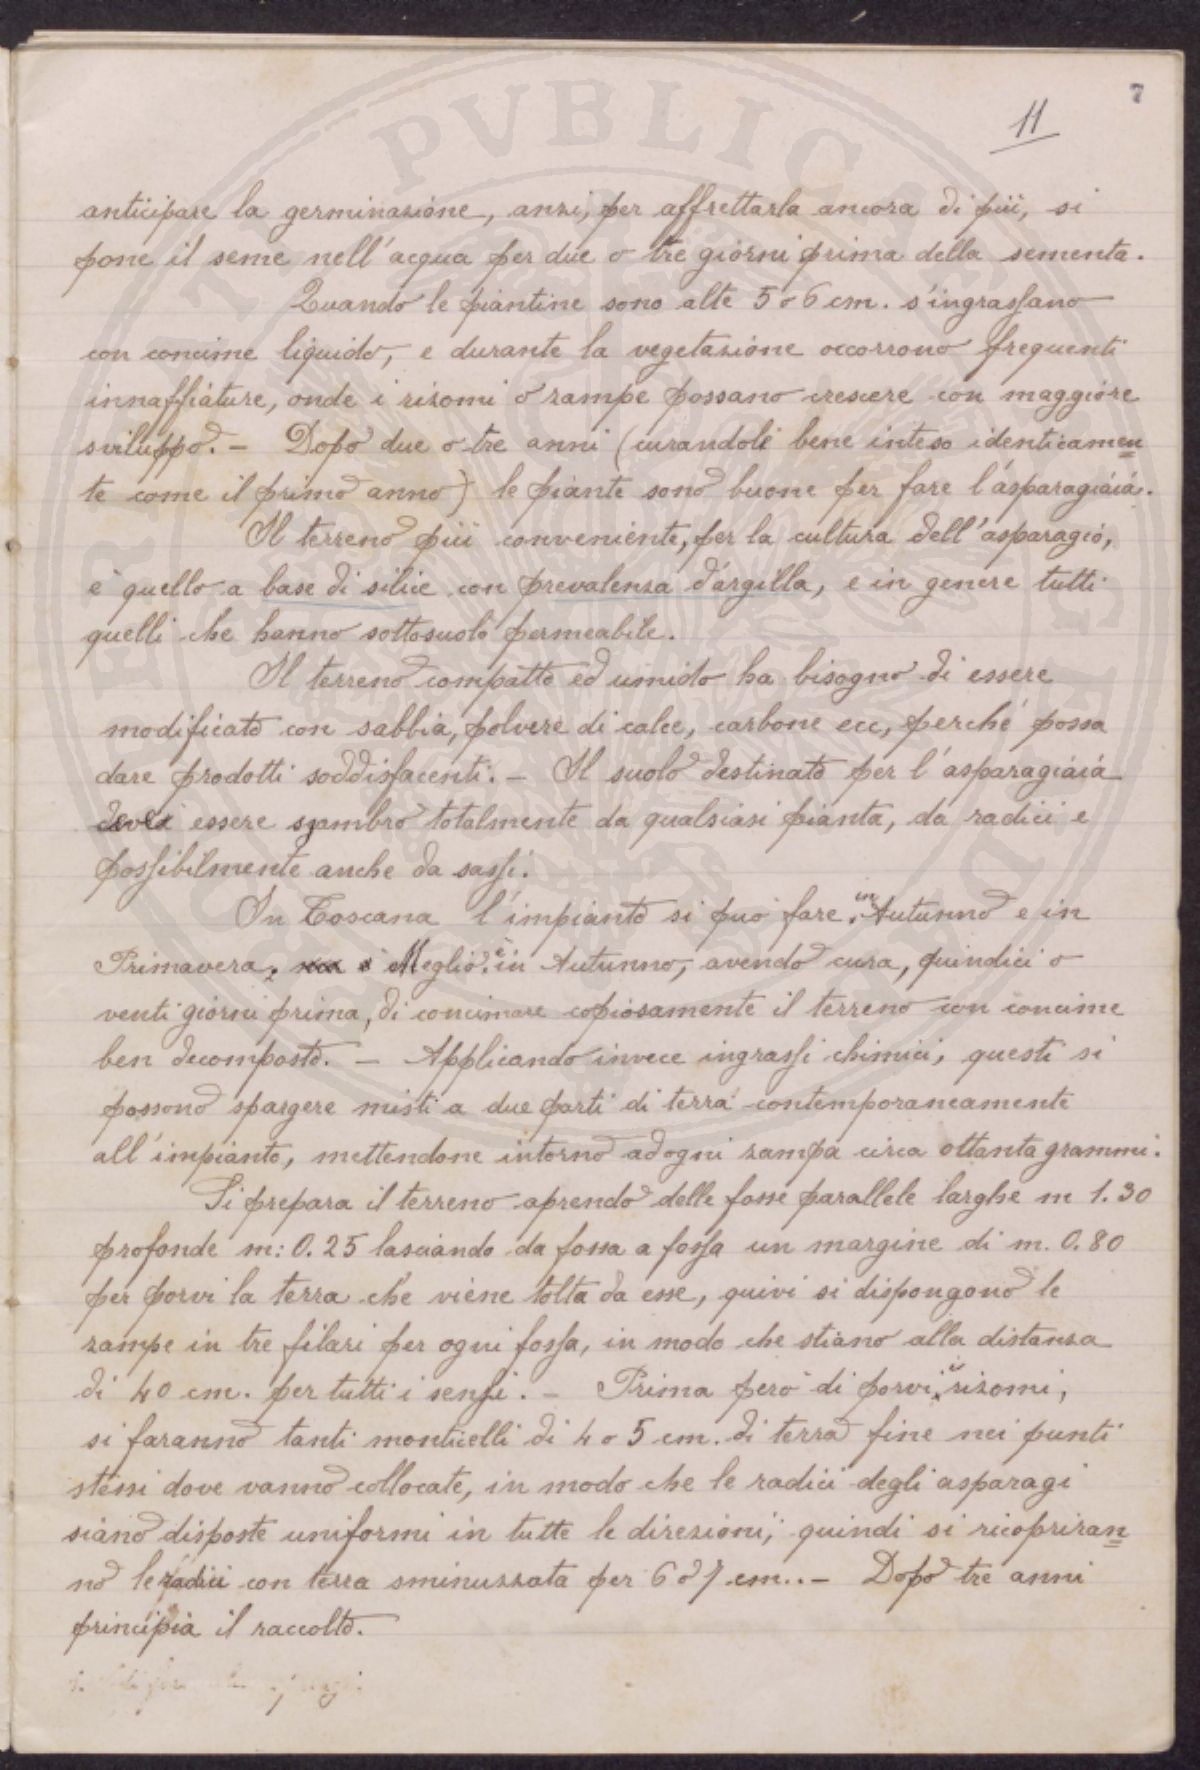 7
11
anticipare la germinazione, anzi, per affrettarla ancora di più, si
pone il seme nell'acqua per due o tre giorni prima della sementa.
Quando le piantine sono alte 5 o 6 cm. s'ingrassano
con concime liquido, e durante la vegetazione occorrono frequenti
innaffiature, onde i rizomi o zampe possano crescere con maggiore
sviluppo. – Dopo due o tre anni (curandole bene inteso identicamen
te come il primo anno) le piante sono buone per fare l'asparagiaia.
Il terreno più conveniente, per la cultura dell'asparagio,
è quello a base di silice con prevalenza d'argilla, e in genere tutti
quelli che hanno sottosuolo permeabile.
Il terreno compatto ed umido ha bisogno di essere
modificato con sabbia, polvere di calce, carbone ecc, perché possa
dare prodotti soddisfacenti. – Il suolo destinato per l'asparagiaia
deve essere sgombro totalmente da qualsiasi pianta, da radici e
possibilmente anche da sassi.
In Toscana l'impianto si può fare in Autunno e in
Primavera. Meglio è in Autunno, avendo cura, quindici o
venti giorni prima, di concimare copiosamente il terreno con concime
ben decomposto. – Applicando invece ingrassi chimici, questi si
possono spargere misti a due parti di terra contemporaneamente
all'impianto, mettendone intorno ad ogni zampa circa ottanta grammi.
Si prepara il terreno aprendo delle fosse parallele larghe m 1.30
profonde m: 0.25 lasciando da fossa a fossa un margine di m. 0.80
per porvi la terra che viene tolta da esse, quivi si dispongono le
zampe in tre filari per ogni fossa, in modo che stiano alla distanza
di 40 cm. per tutti i sensi. – Prima però di porvi i rizomi,
si faranno tanti monticelli di 4 o 5 cm. di terra fine nei punti
stessi dove vanno collocate, in modo che le radici degli asparagi
siano disposte uniformi in tutte le direzioni; quindi si ricopriran
no le radici con terra sminuzzata per 6 o 7 cm.. – Dopo tre anni
principia il raccolto.